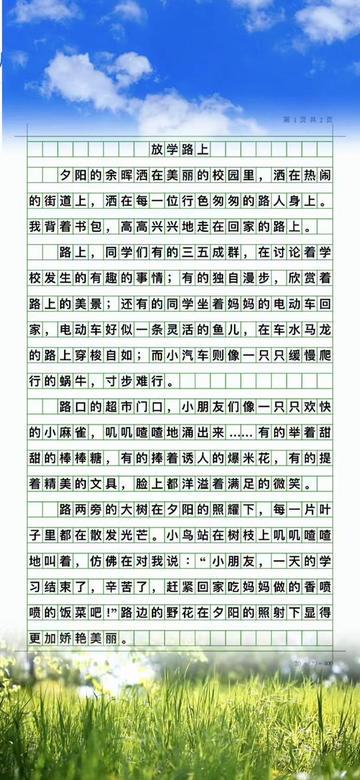 第 1 页 共 2 页
放学路上
夕阳的余晖洒在美丽的校园里，洒在热闹
的街道上，洒在每一位行色匆匆的路人身上。
我背着书包，高高兴兴地走在回家的路上。
路上，同学们有的三五成群，在讨论着学
校发生的有趣的事情；有的独自漫步，欣赏着
路上的美景；还有的同学坐着妈妈的电动车回
家，电动车好似一条灵活的鱼儿，在车水马龙
的路上穿梭自如；而小汽车则像一只只缓慢爬
行的蜗牛，寸步难行。
路口的超市门口，小朋友们像一只只欢快
的小麻雀，叽叽喳喳地涌出来……有的举着甜
甜的棒棒糖，有的捧着诱人的爆米花，有的提
着精美的文具，脸上都洋溢着满足的微笑。
路两旁的大树在夕阳的照耀下，每一片叶
子里都在散发光芒。小鸟站在树枝上叽叽喳喳
地叫着，仿佛在对我说：“小朋友，一天的学
习结束了，辛苦了，赶紧回家吃妈妈做的香喷
喷的饭菜吧!”路边的野花在夕阳的照射下显得
更加娇艳美丽。